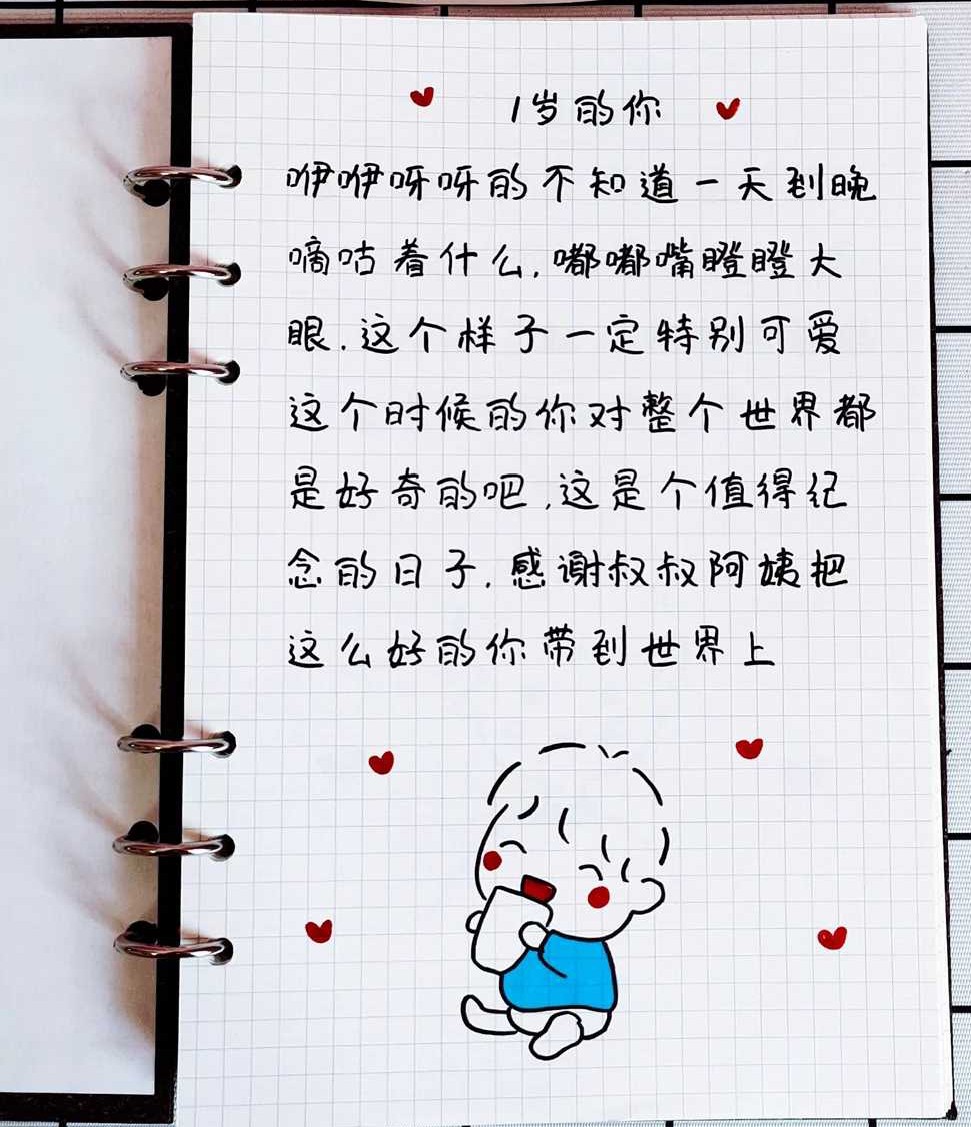 1岁的你
咿咿呀呀的不知道一天到晚
嘀咕着什么,嘟嘟嘴瞪瞪大
眼.这个样子一定特别可爱
这个时候的你对整个世界都
是好奇的吧,这是个值得纪
念的日子,感谢叔叔阿姨把
这么好的你带到世界上